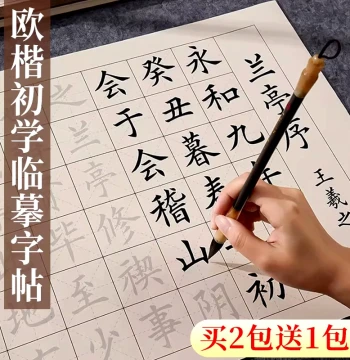 欧楷初学临摹字帖
兰亭序
王羲之
永和九年
癸丑暮春初
会于会稽山阴
之兰亭修禊事
毕至少
地
买2包送1包